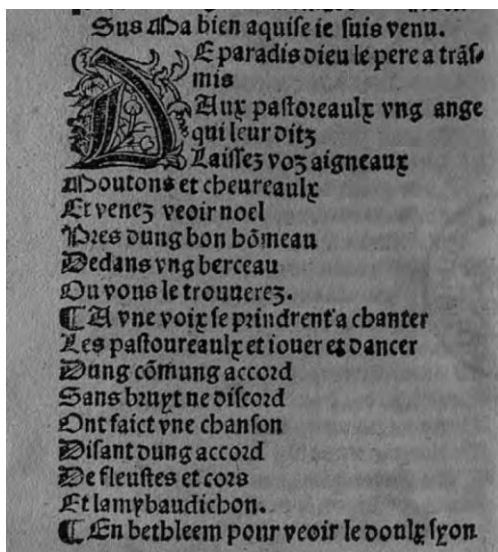 Sus Ma bien aquise ie suis venu.
DE paradis dieu le pere a trãs-
mis
Aux pastoreaulx vng ange
qui leur ditz
Laissez voz aigneaux
Moutons et cheureaulx
Et venez veoir noel
Pres dung bon hõmeau
Dedans vng berceau
Ou vons le trouuerez.
¶ A vne voix se prindrent a chanter
Les pastoureaulx et iouer et dancer
Dung cõmung accord
Sans bruyt ne discord
Ont faict vne chanson
Disant dung accord
De fleustes et cors
Et lamybaudichon.
¶ En bethleem pour veoir le doulx syon